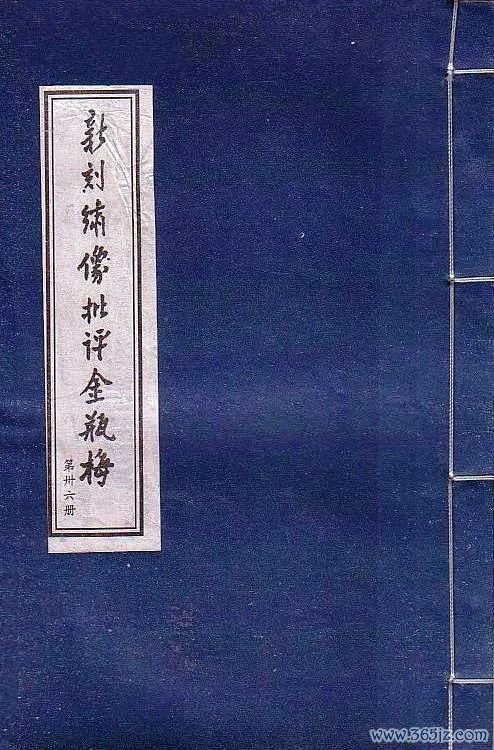 新刻绣像批评金瓶梅
第卅六册
www.365jz.com